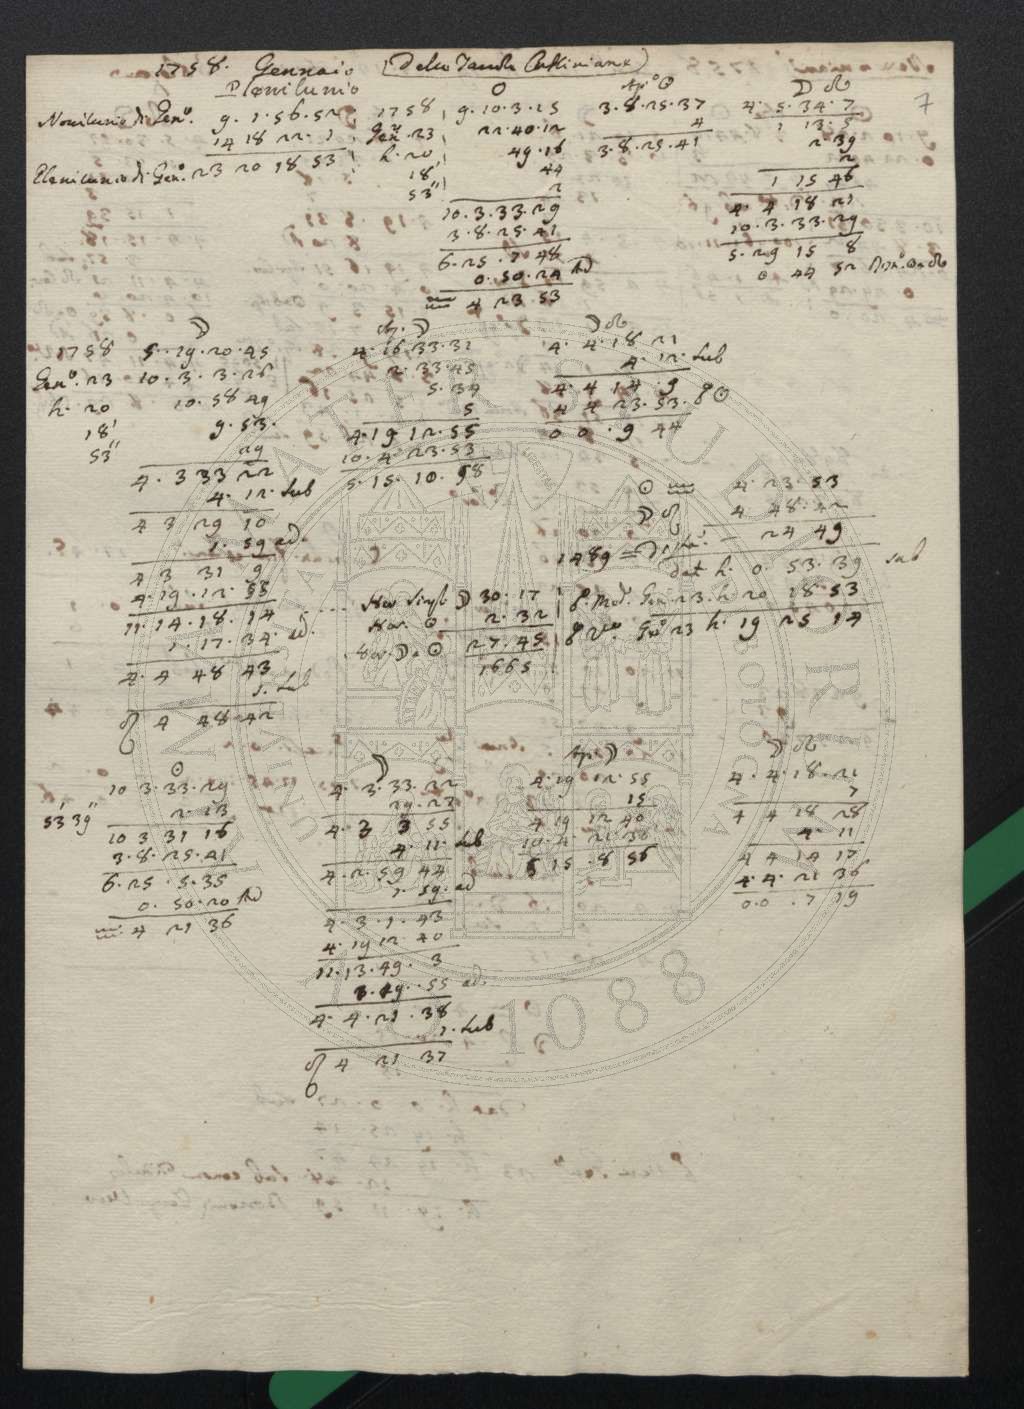 1758. Gennaio (Dalle Tavole Cassiniane)
Plenilunio
Novilunio di Gen.o g. 1. 56. 52
14 18 22. 1
Plenilunio di Gen.o 23 20 18 53
1758
Gen. 23
h. 20
18'
53"
☉
9. 10. 3. 15
22. 40. 12
49. 16
44
2
10. 3. 33. 29
3. 8. 25. 41
6. 25. 7. 48
0. 50. 24 Ad
♒ 4 23. 53
Ap.o ☉
3. 8. 25. 37
4
3. 8. 25. 41
☽ ☊
4. 5. 34. 7
1 13. 5
2. 39
2
1 15 46
4. 4 18 21
10. 3. 33. 29
5. 29 15 8
0 44 52
7
☽
1758 5. 19. 20. 45
Gen.o 23 10. 3. 3. 26
h. 20 10. 58 49
18' 9. 53.
53" 29
4. 3 33 22
4. 12. Sub
4 3 29 10
1. 59 ad.
4 3 31 9
4. 19. 12. 55
11. 14. 18. 14
1. 17. 34. ad.
4. 4 48 43
1. Sub
♌ 4 48. 42
Ap. ☽
4. 16. 33. 31
2. 33. 45
5. 34
5
4. 19 12. 55
10. 4. 23. 53
5. 15. 10. 58
☽ ☊
4. 4. 18 21
4. 12. Sub
4. 4 14. 9
4 4 23. 53. ☉
0 0. 9 44
☉ ♒ 4. 23. 53
☽ ♌ 4 48. 42
1489 = Dista. - 24 49
dat h. 0. 53. 39 Sub
Gen 23. h 20 18. 53
Gen.o 23 h. 19 25 14
Hor. Simpl. ☽ 30. 17
Hor. ☉ 2. 32
Hor. ☽ a ☉ 27. 45
1665
☉
10 3. 33. 29
53' 39" 2. 13
10 3 31 16
3. 8. 25. 41
6. 25. 5. 35
0. 50. 20 Ad
♒. 4 21 36
☽
4. 3. 33. 22
29. 27
4. 3 3 55
4. 11. Sub
4. 2. 59 44
1. 59. ad
4. 3. 1. 43
4. 19 12 40
11. 13. 49. 3
1. 19. 55 ad.
4. 4. 21. 38
1. Sub
♌ 4 21 37
Ap. ☽
4. 19 12. 55
15
4 19 12 40
10. 4. 21. 36
5 15. 8 56
☽ ☊
4. 4. 18. 21
7
4 4 18 28
4. 11
4 4 14 17
4. 4. 21 36
0. 0. 7 19
ALMA MATER STUDIORUM
A.D. 1088